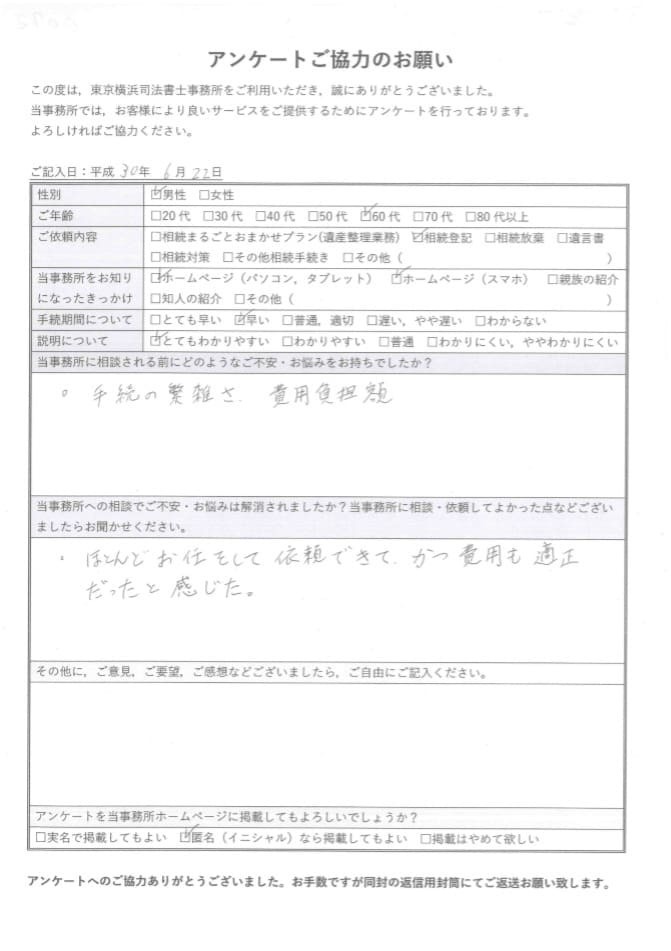 アンケートご協力のお願い
この度は，東京横浜司法書士事務所をご利用いただき，誠にありがとうございました。
当事務所では，お客様により良いサービスをご提供するためにアンケートを行っております。
よろしければご協力ください。
ご記入日：平成 30年 6月 22日
性別 ☑男性 □女性
ご年齢 □20代 □30代 □40代 □50代 ☑60代 □70代 □80代以上
ご依頼内容 □相続まるごとおまかせプラン(遺産整理業務) ☑相続登記 □相続放棄 □遺言書
□相続対策 □その他相続手続き □その他（ ）
当事務所をお知り ☑ホームページ（パソコン，タブレット） ☑ホームページ（スマホ） □親族の紹介
になったきっかけ □知人の紹介 □その他（ ）
手続期間について □とても早い ☑早い □普通，適切 □遅い，やや遅い □わからない
説明について ☑とてもわかりやすい □わかりやすい □普通 □わかりにくい，ややわかりにくい
当事務所に相談される前にどのようなご不安・お悩みをお持ちでしたか？
。手続の繁雑さ．費用負担額
当事務所への相談でご不安・お悩みは解消されましたか？当事務所に相談・依頼してよかった点などござい
ましたらお聞かせください。
・ほとんどお任せして依頼できて、かつ費用も適正
だったと感じた。
その他に，ご意見，ご要望，ご感想などございましたら，ご自由にご記入ください。
アンケートを当事務所ホームページに掲載してもよろしいでしょうか？
□実名で掲載してもよい ☑匿名（イニシャル）なら掲載してもよい □掲載はやめて欲しい
アンケートへのご協力ありがとうございました。お手数ですが同封の返信用封筒にてご返送お願い致します。